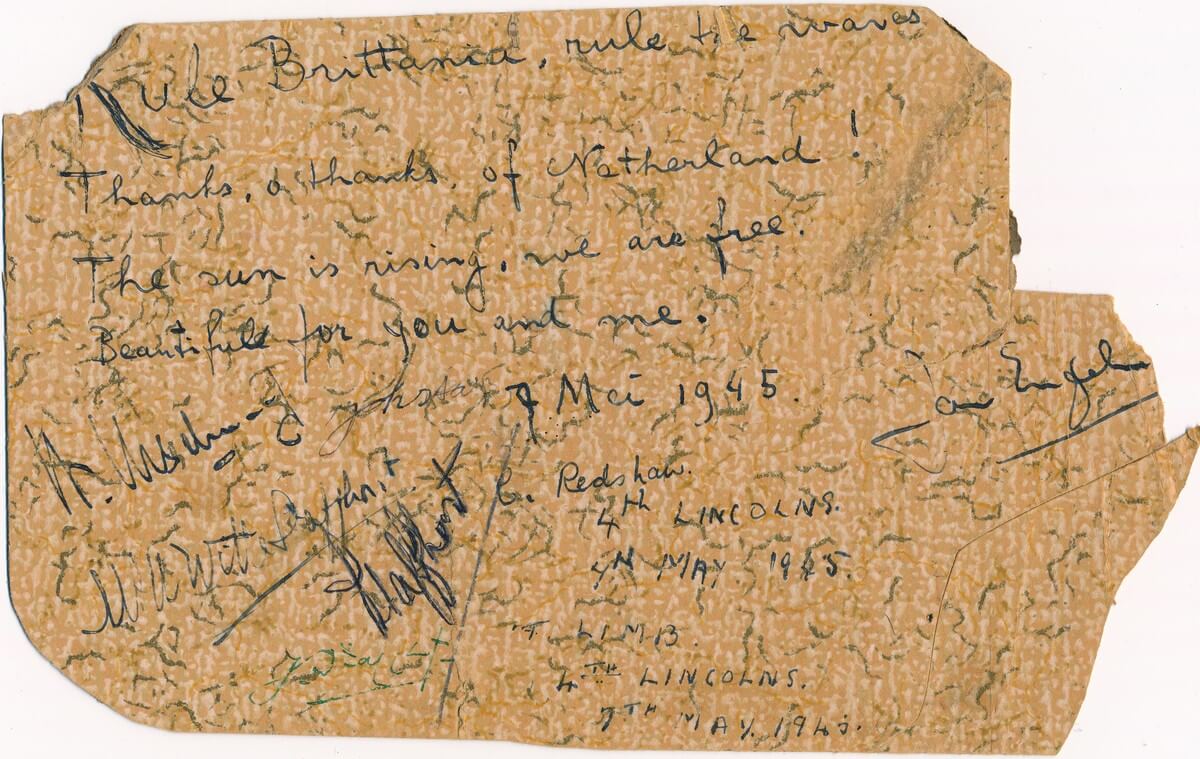 Rule Brittania, rule the waves
Thanks, o thanks, of Netherland!
The sun is rising, we are free.
Beautifull for you and me.
7 Mei 1945.
van Engelen
C. Redshaw.
4TH LINCOLNS.
7TH MAY. 1945.
T. LIMB.
4TH LINCOLNS.
7TH MAY. 1945.